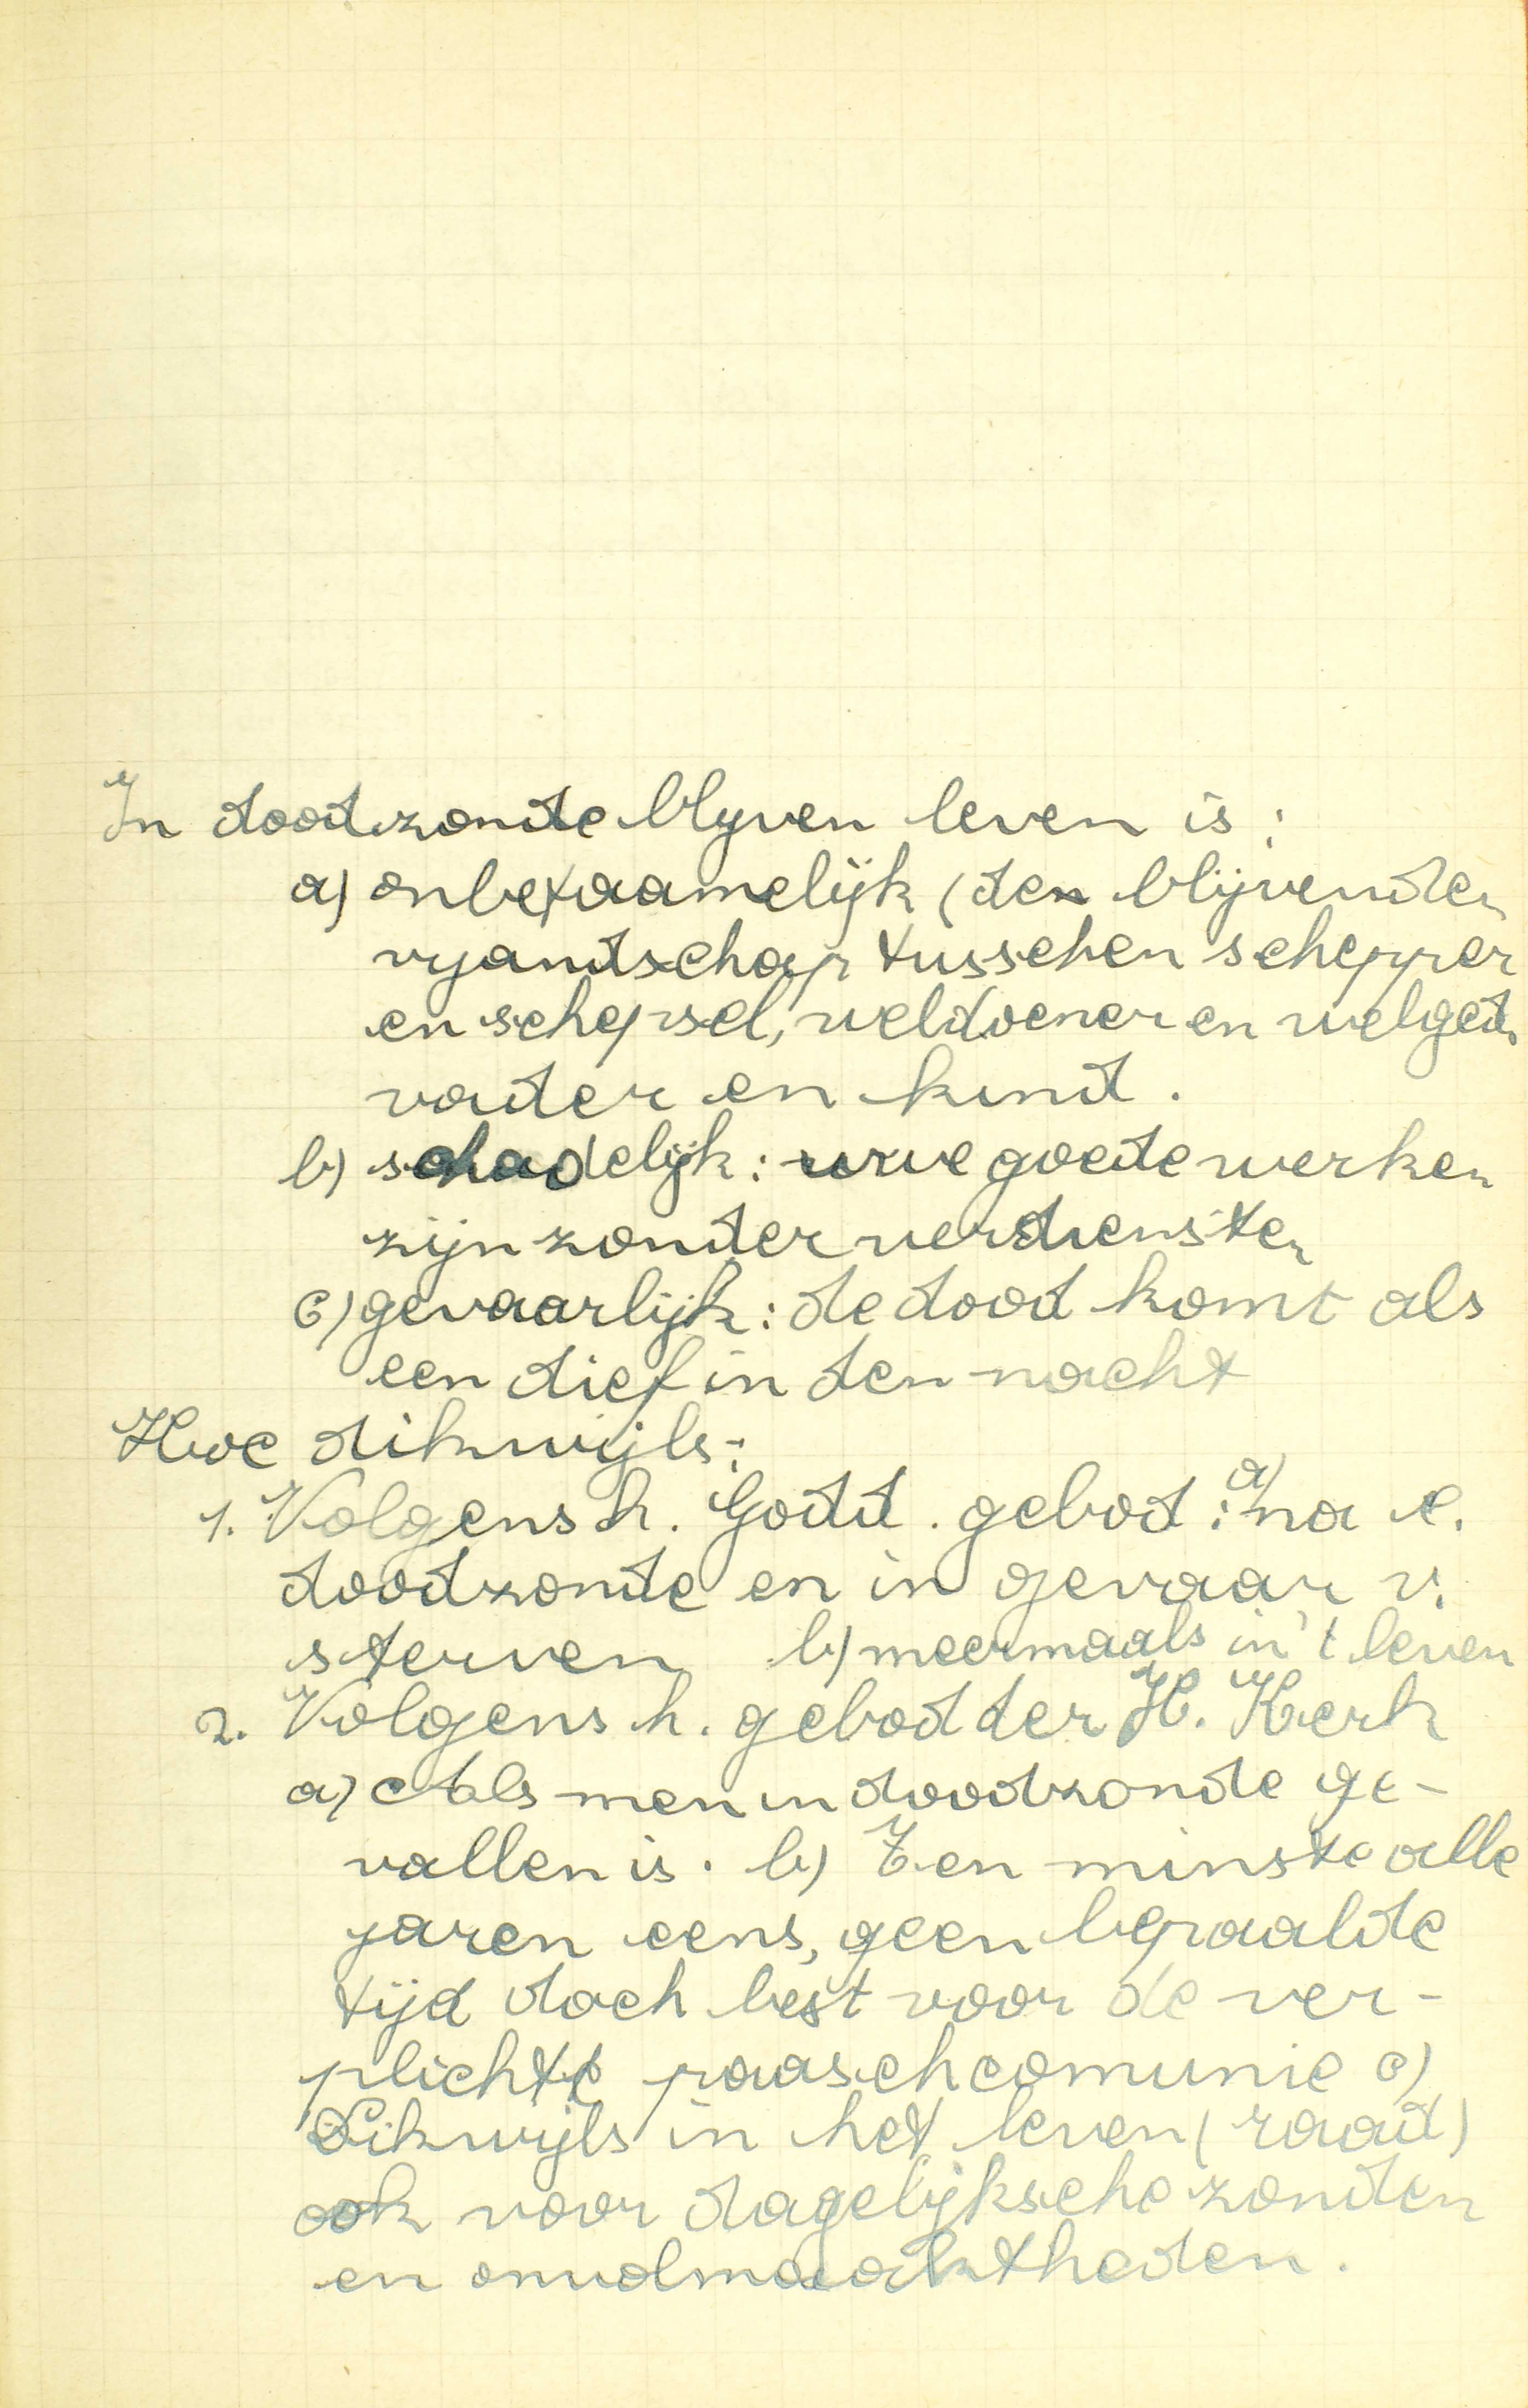 In doodzonde blyven leven is:
a) onbetaamelijk (den blijvenden
vyandschap tusschen schepper
en schepsel, weldoener en welged.
vader en kind.
b) schadelijk: uwe goede werken
zijn zonder verdiensten
c) gevaarlijk: de dood komt als
een dief in den nacht
Hoe dikwijls:
1. Volgens h. Godd. gebod: a) na e.
doodzonde en in gevaar v.
sterven b) meermaals in 't leven
2. Volgens h. gebod der H. Kerk
a) Als men in doodzonde ge-
vallen is. b) Ten minste alle
jaren eens, geen bepaalde
tijd doch best voor de ver-
plichte paaschcomunie c)
Dikwijls in het leven (raad)
ook voor dagelijksche zonden
en onvolmaaktheden.